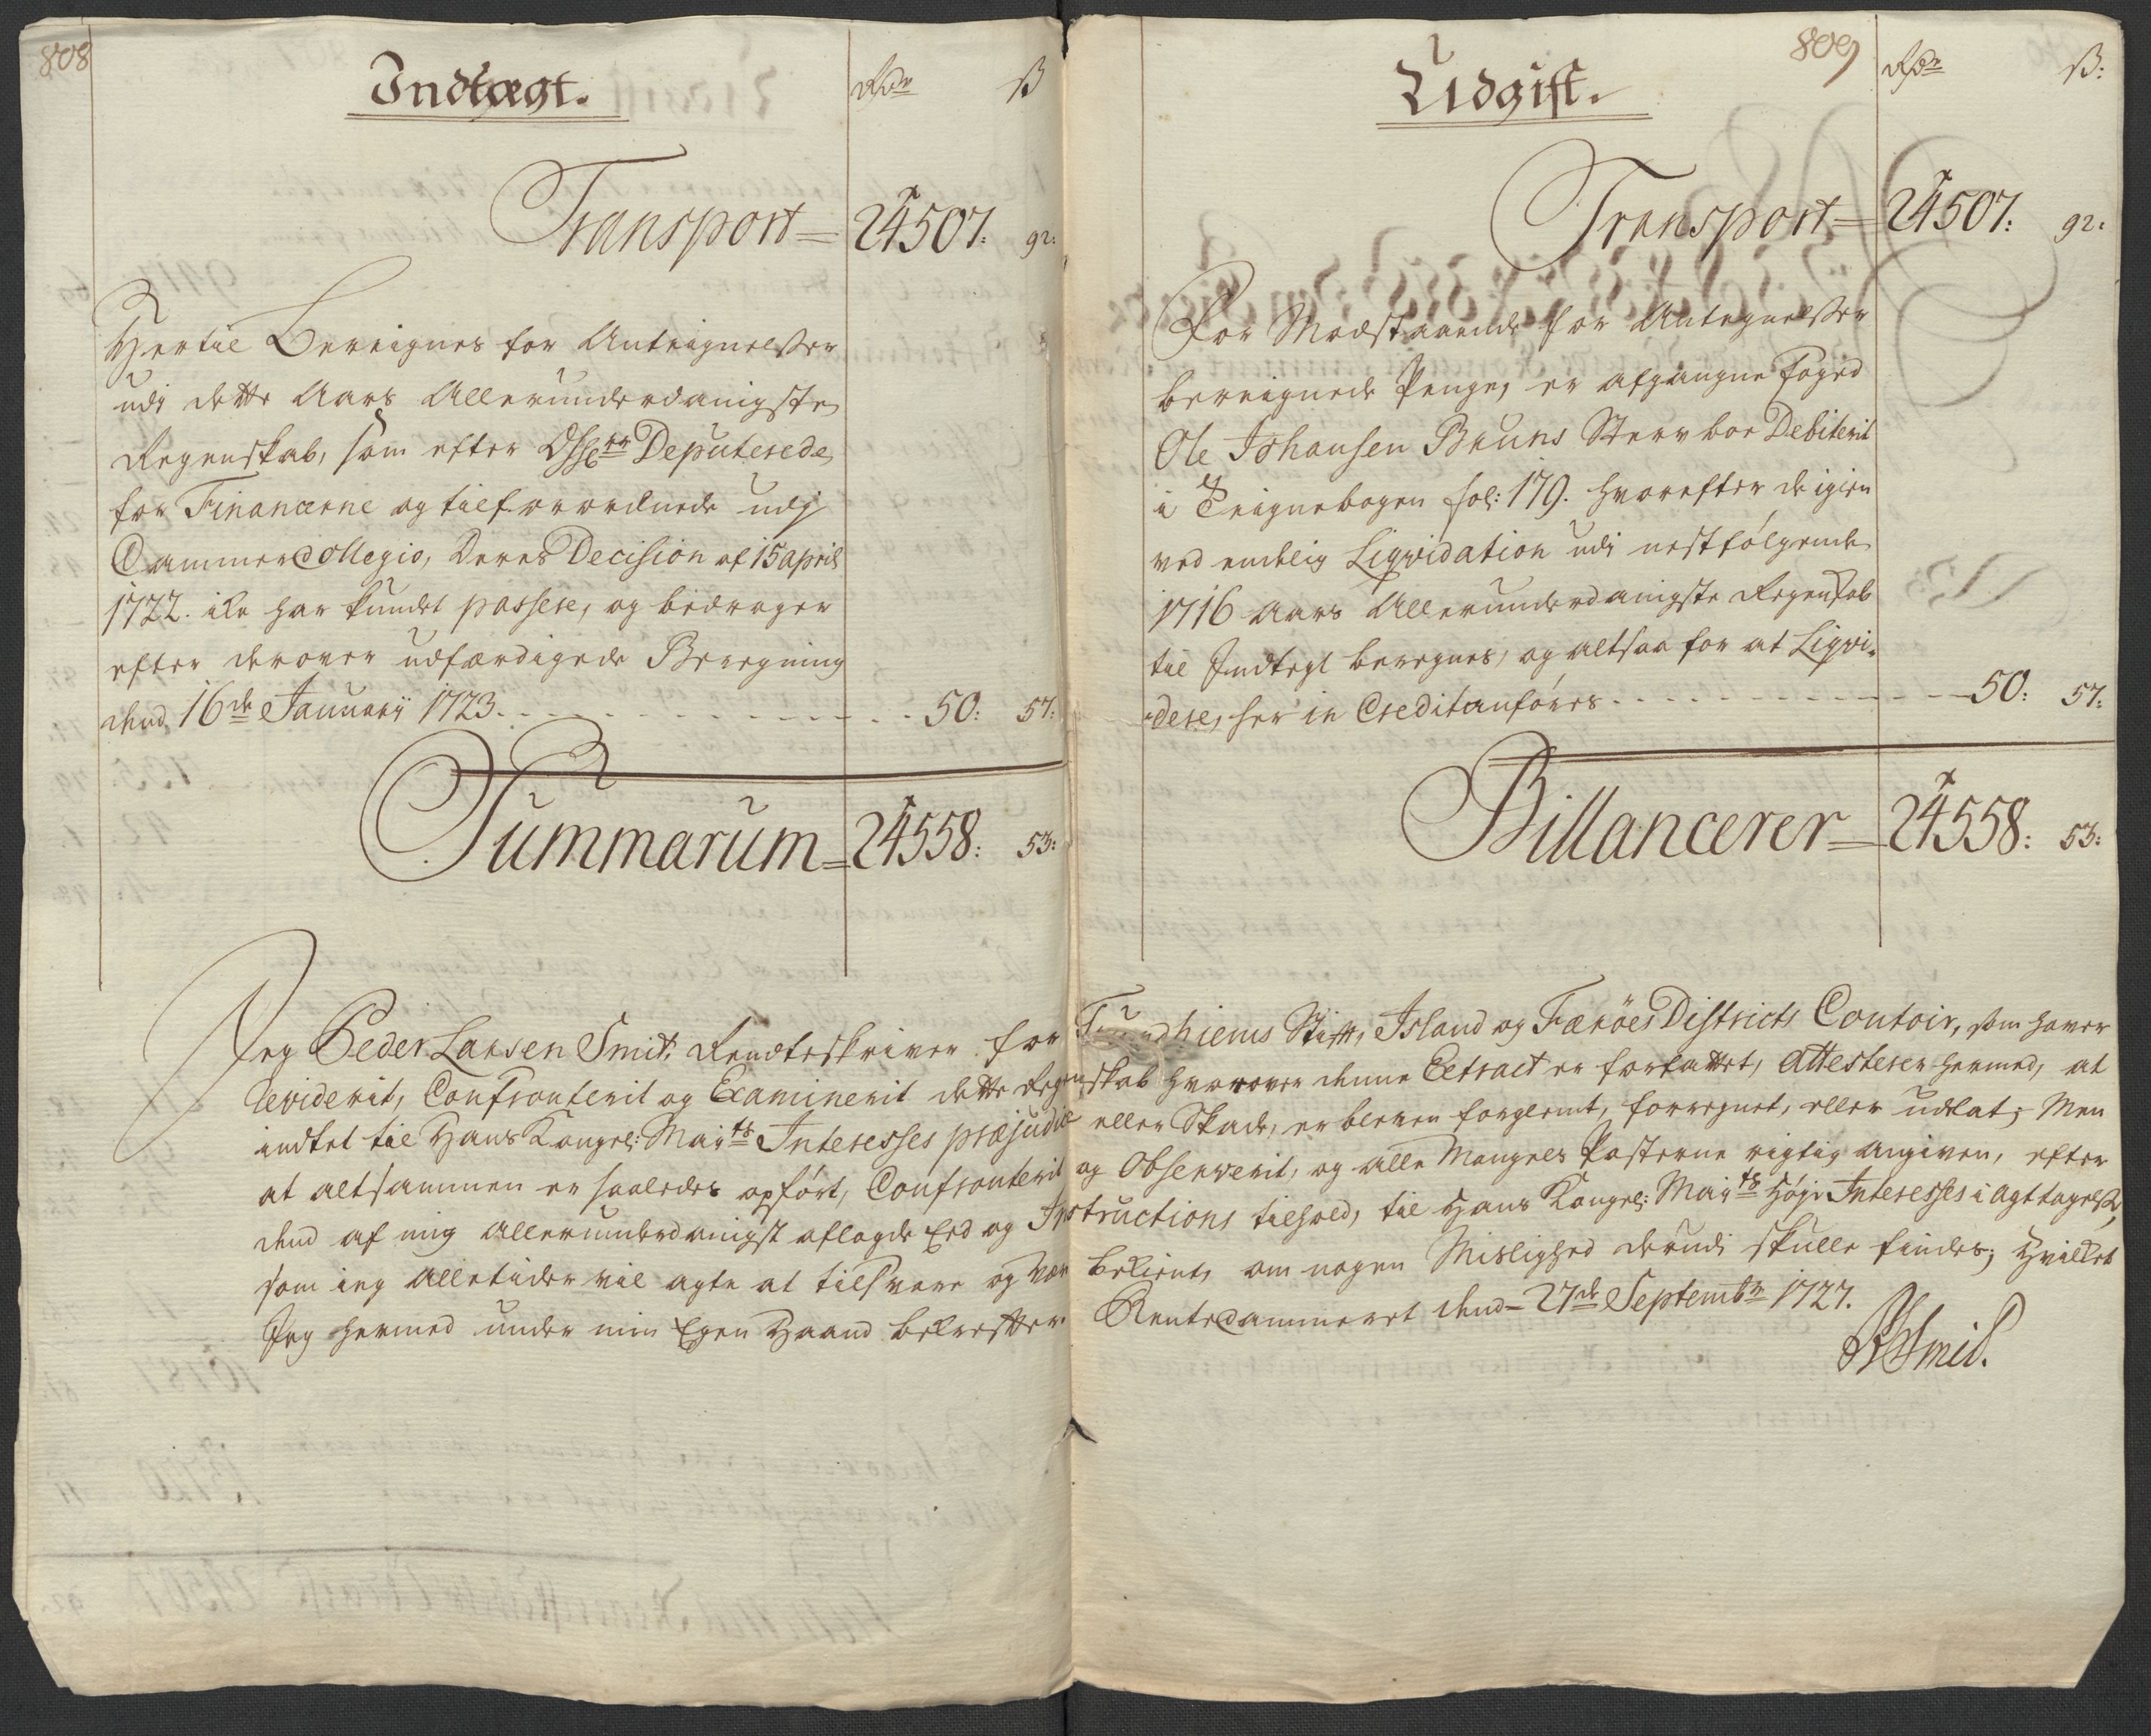 808
Indtægt.
Rdr ß
Transport = 24507: 92:
Hertil Bereignes for Anteignelsser
udi dette Aars Allerunderdanigste
Regenskab, som efter Deputerede
for Financerne og tilforordnede udj
Cammer Collegio, Deres Decision af 15 april
1722. ike har kundet passere, og bedrager
efter derover udfærdigede Beregning
dend 16de Januarij 1723. 50: 57:
Summarum = 24558: 53:
809
Udgift.
Rdr ß:
Transport = 24507: 92:
For Modstaaende for Antegnelsser
bereignede Penge, er afgangne Foged
Ole Johansen Bruuns Sterboe Debiterit
i Teignebogen fol: 179. hvorefter de igien
ved endelig Liqvidation udi nestfølgende
1716 Aars Allerunderdanigste Regenskab
til Indtegt beregnes, og altsaa for at Liqvi-
dere, her in Credit anføres 50: 57:
Billancerer = 24558: 53:
Jeg Peder Larsen Smit, Rendteskriver for Trundhiems Stift, Island og Færöes Districts Contoir, som haver
Reviderit, Confronterit og Examinerit dette Regenskab hvorover denne Extract er forfattet, Attesterer hermed, at
indtet til Hans Kongel: Mayts Interesses præjudice eller Skade, er bleven forglemt, forregnet, eller udlat; Men
at altsammen er saaledes opført, Confronterit og Observerit, og alle Mangels Posterne rigtig angiven, efter
dend af mig allerunderdanigst aflagde Eed og Instructions tilhold, til Hans Kongel: Mayts høje Interesses i agttagelse,
som ieg alletider vil agte at tilsvare og være bekient, om nogen Mislighed derudi skulle findes; Hvilket
Jeg hermed under min Egen Haand bekrefter. Rente Cammeret dend 27de Septembr 1727.
PLSmit.